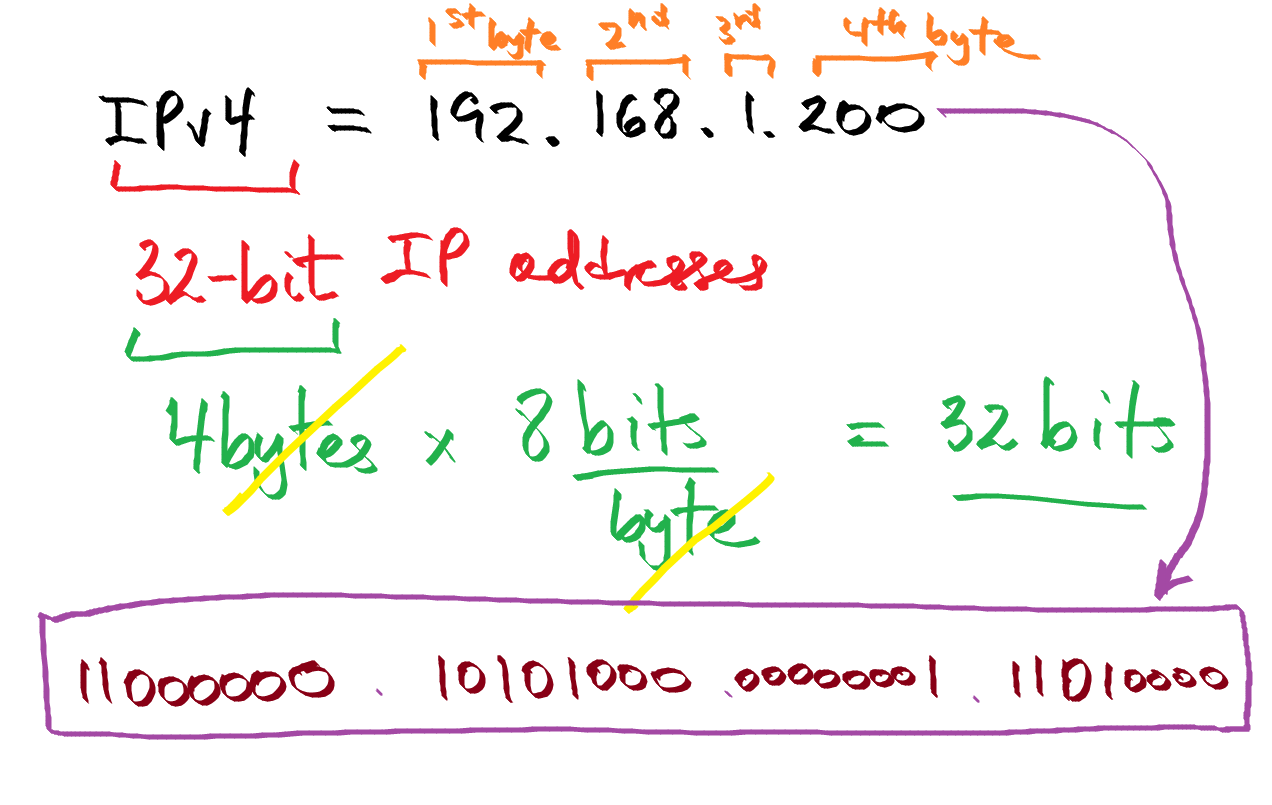 1st byte 2nd 3rd 4th byte
IPv4 = 192.168.1.200
32-bit IP addresses
4 bytes x 8 bits = 32 bits
byte
11000000 . 10101000 . 00000001 . 11010000